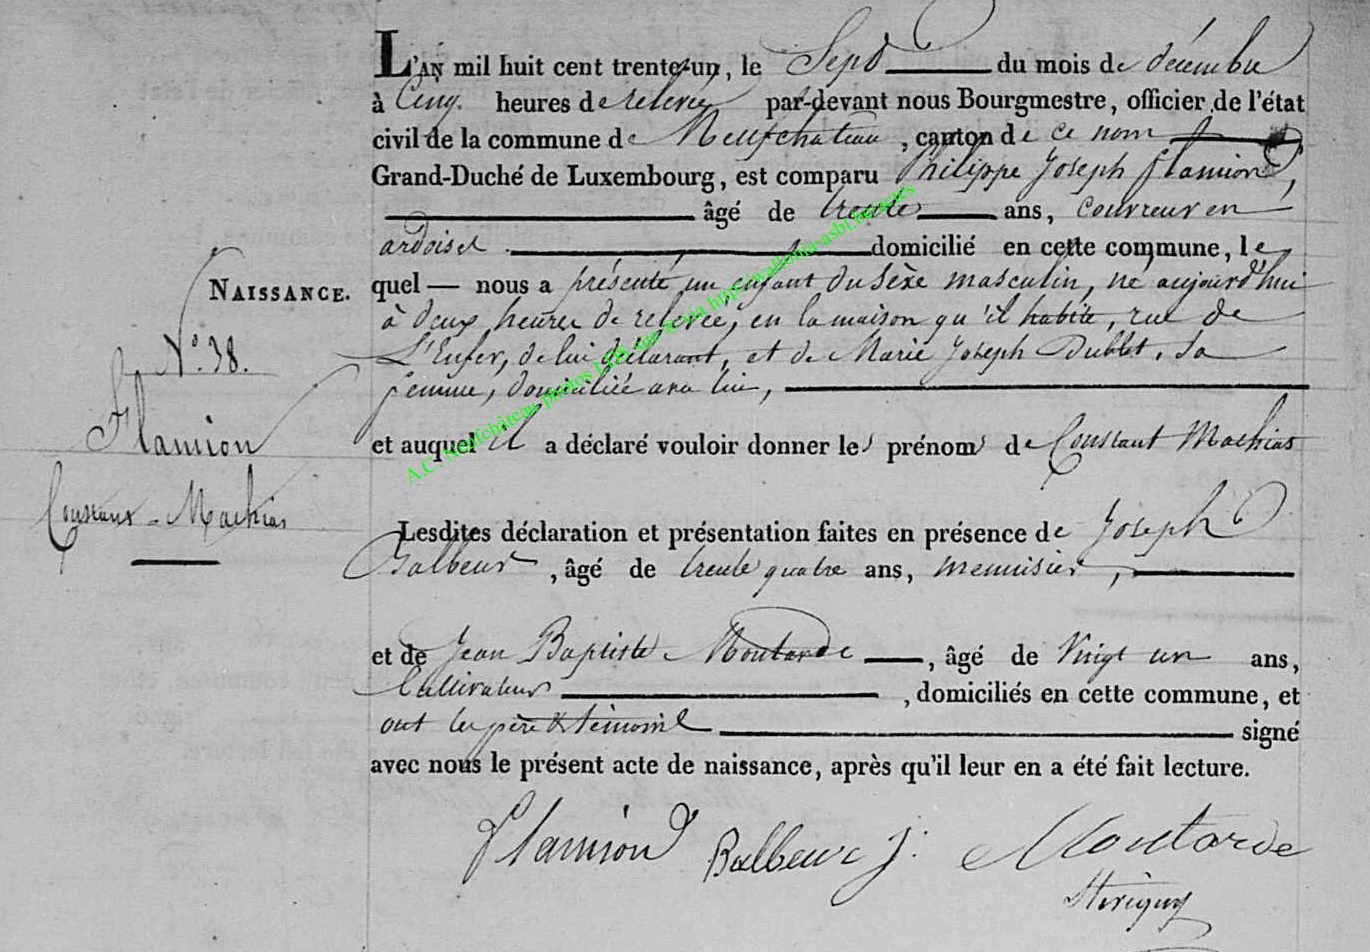 L'AN mil huit cent trente-un, le Sept du mois de décembre
à Cinq heures de relevée par-devant nous Bourgmestre, officier de l'état
civil de la commune de Neufchateau, canton de ce nom
Grand-Duché de Luxembourg, est comparu Philippe Joseph Flamion,
âgé de trente ans, couvreur en
ardoises domicilié en cette commune, le
NAISSANCE.
quel — nous a présenté un enfant du sèxe masculin, né aujourd'hui
à deux heures de relevée, en la maison qu'il habite, rue de
N.º 38.
L'Enfer, de lui déclarant, et de Marie Joseph Dublet, sa
femme, domiciliée avec lui,
Flamion
et auquel il a déclaré vouloir donner les prénoms de Constant Mathias
Constant - Mathias
Lesdites déclaration et présentation faites en présence de Joseph
Balbeur, âgé de trente quatre ans, menuisier,
et de Jean Baptiste Moutarde, âgé de Vingt un ans,
Cultivateur, domiciliés en cette commune, et
ont les père & témoins signé
avec nous le présent acte de naissance, après qu'il leur en a été fait lecture.
Flamion Balbeur J. Moutarde
A.C. Neufchâteau photos LDS sur geneia http://wallonia-asbl.be/actes